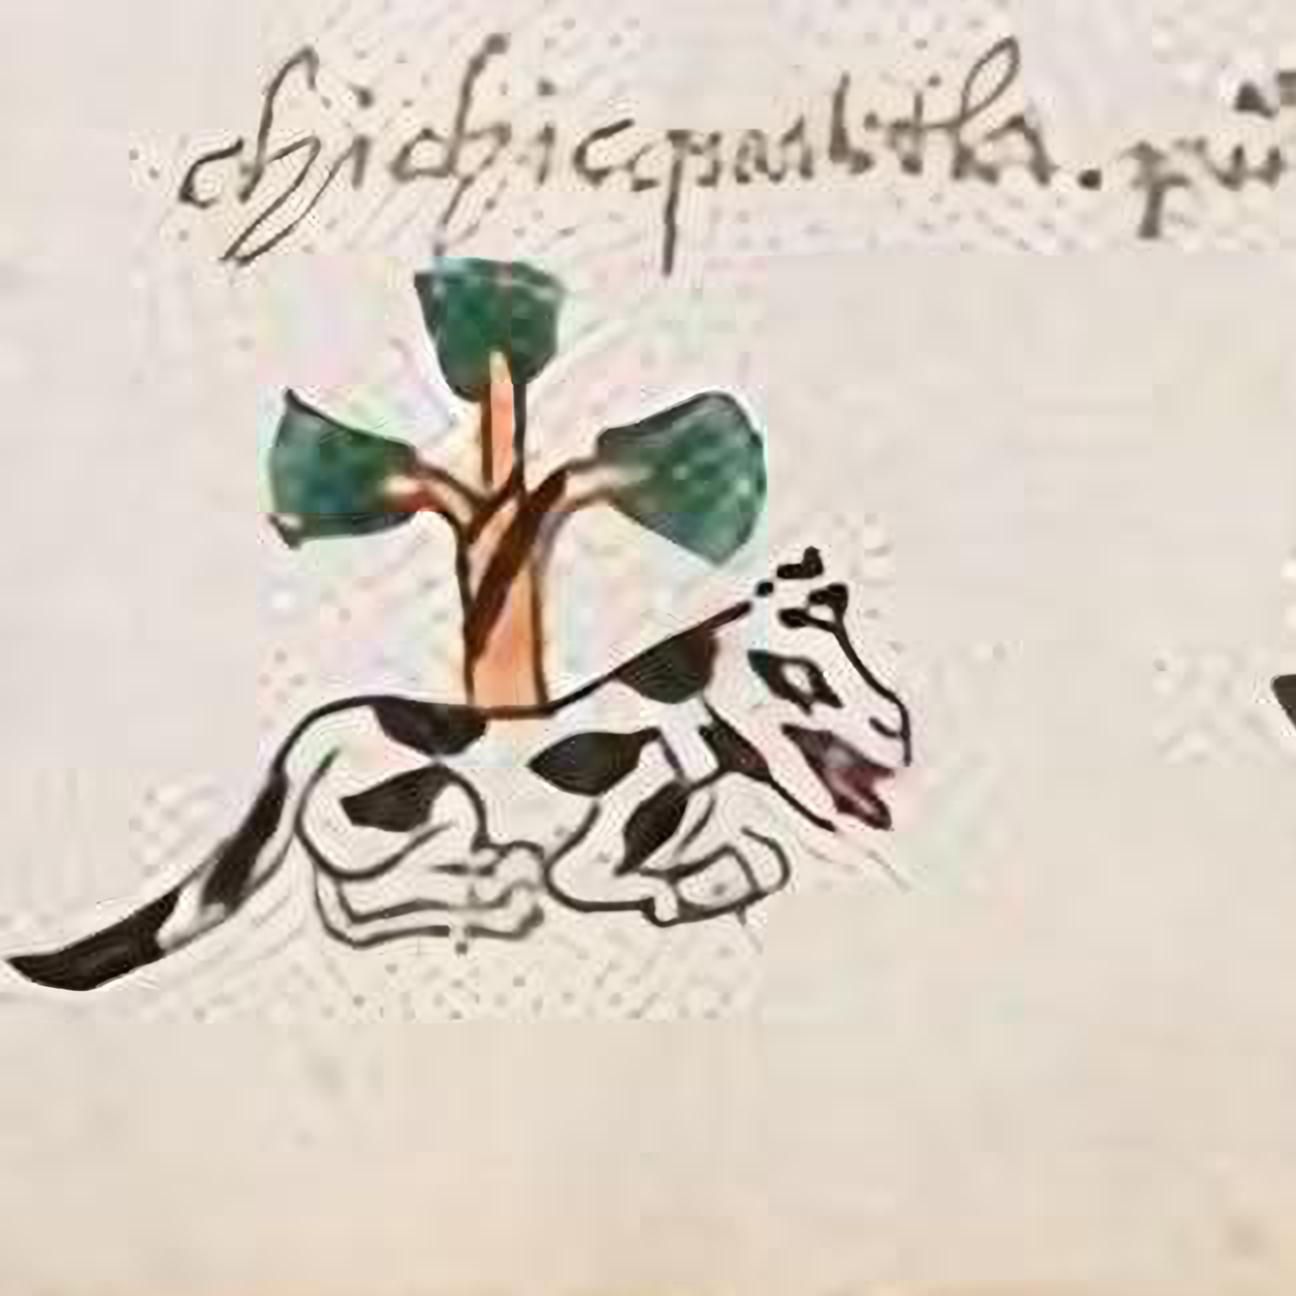 chichicquabtla. pu